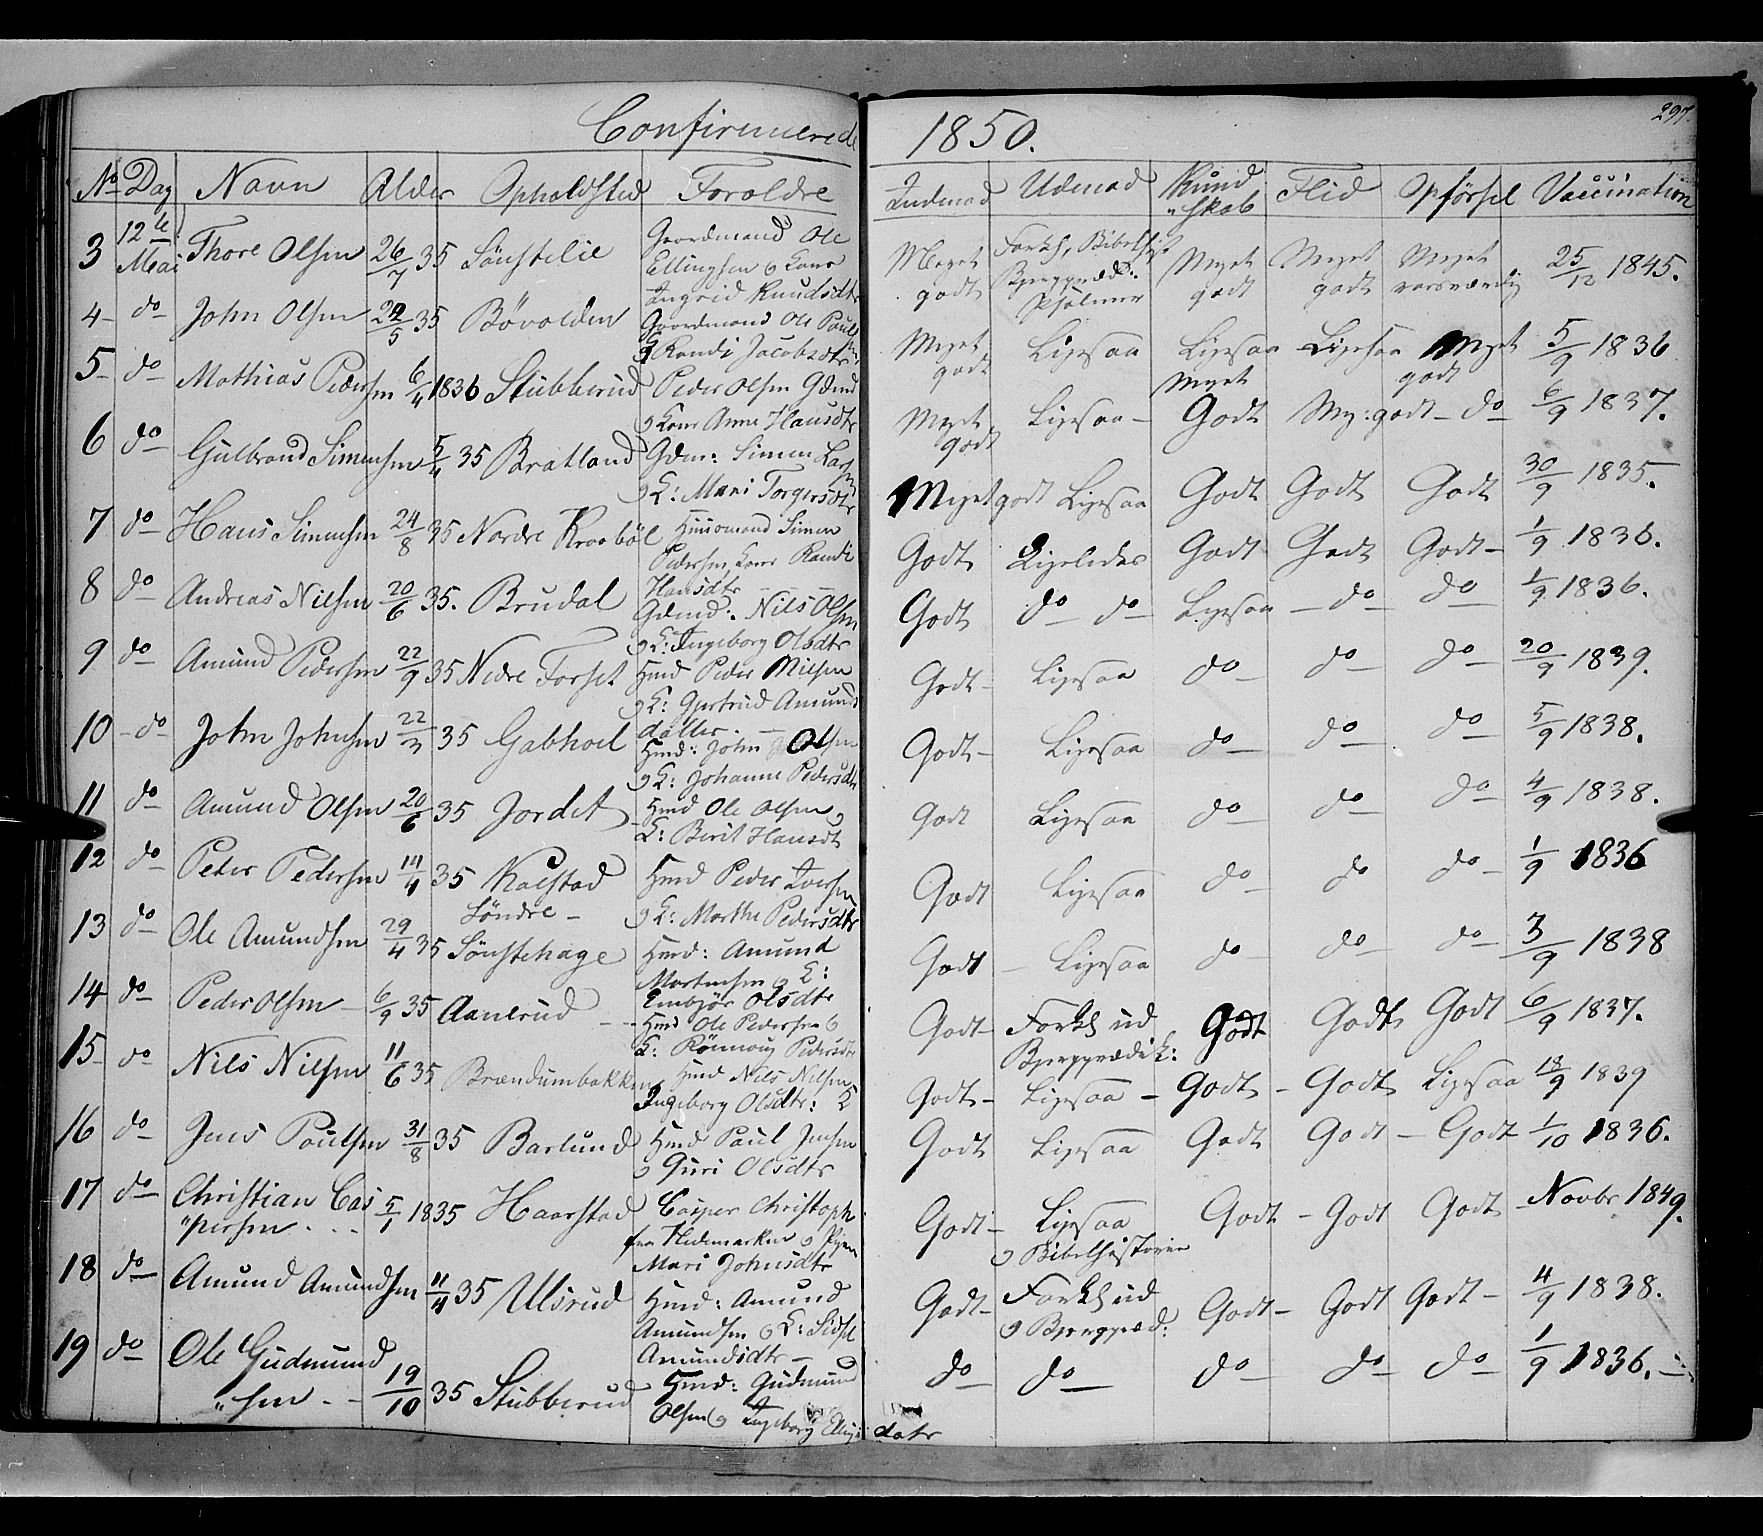 Confirmerede 1850.
297.
No Dag Navn Alder Opholdsted Forældre Indenad Udenad Kund"skab Flid Opførsel Vaccination
3 12te Mai Thore Olsen 26/7 35 Sönstelie Gaardmand Ole
Ellingsen og Kone
Ingrid Knudsdtr
Meget godt Forkl, Bibelhist Bjergpræd: Psalmer Meget godt Meget godt Meget 25/12 1845.
4 do John Olsen 5 35 Bövolden Gaardmand Ole Pouls
og Randi Jacobsdtr
Meget godt Ligesaa Ligesaa Ligesaa Meget godt 5/9 1836
5 do Mathias Pedersen 6/4 1836 Stubberud Peder Olsen Gdmd
og Kone Anne Hansdtr
Meget godt Ligesaa Meget Godt Mg: godt do 6/9 1837.
6 do Gulbrand Simensen 5/4 35 Bratland Gdm: Simen Lars
og K: Mari Torgersdtr
Meget godt Ligesaa Godt Godt Godt 30/9 1835.
7 do Hans Simensen 24/8 35 Nordre Kraabøl Huusmand Simen
Pedersen, Kone Randi
Hansdtr
Godt Ligeledes Godt Godt Godt 1/9 1836.
8 do Andreas Nilsen 20/6 35. Brudal Gdmd: Nils Olsen
og K: Ingeborg Olsdtr
Godt do do Ligesaa do do 1/9 1836.
9 do Amund Pedersen 22/9 35 Nedre Forset Hmd Peder Nilsen
og K: Gjertrud Amunds
datter.
Godt Ligesaa do do do 20/9 1839.
10 do John Johnsen 22/3 35 Gabhoel Hmd: John Olsen
og K: Johanne Pedersdtr
Godt Ligesaa do do do 5/9 1838.
11 do Amund Olsen 20/6 35 Jordet Hmd Ole Olsen og
K: Berit Hansdt
Godt Ligesaa do do do 4/9 1838.
12 do Peder Pedersen 14/4 35 Kalstad Hmd Peder Iversen
og K: Marthe Pedersdtr
Godt Ligesaa do do do 1/9 1836
13 do Ole Amundsen 29/4 35 Söndre Sönstehage Hmd: Amund
Mortensen og K:
Embjör Olsdtr
Godt Ligesaa do do do 3/9 1838
14 do Peder Olsen 6/9 35 Aanerud Hmd Ole Pedersen og
K: Rönnoug Pedersdtr
Godt Forkl ud Bjergprædik: Godt Godt Godt 6/9 1837.
15 do Nils Nilsen 11/6 35 Brændumbakken Hmd Nils Nilsen
Ingeborg Olsdtr: K
Godt Ligesaa Godt Godt Ligesaa 18/9 1839
16 do Jens Poulsen 31/8 35 Barlund Hmd Paul Jensen
og Guri Olsdtr
Godt Ligesaa Godt Godt Godt 1/10 1836.
17 do Christian Cas"persen 5/1 1835 Haarstad Casper Christoph
fra Hedemarken og Pigen
Mari Johnsdtr
Godt Ligesaa og Bibelhistorien Godt Godt Godt Novbr 1849.
18 do Amund Amundsen 11/4 35 Ulsrud Hmd: Amund
Amundsen og K: Sidsel
Amundsdtr
Godt Forkl ud og Bjergpræd: Godt Godt Godt 4/9 1838.
19 do Ole Gudmund"sen 19/10 35 Stubberud Hmd: Gudmund
Olsen og Ingeborg datr
do do do do do 1/9 1836.